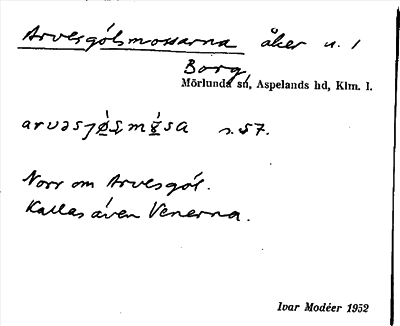 Arvesgölsmossarna åker u. 1
Borg,
Mörlunda sn, Aspelands hd, Klm. l.
s. 57.
Norr om Arvesgöl.
Kallas även Venerna.
Ivar Modéer 1952